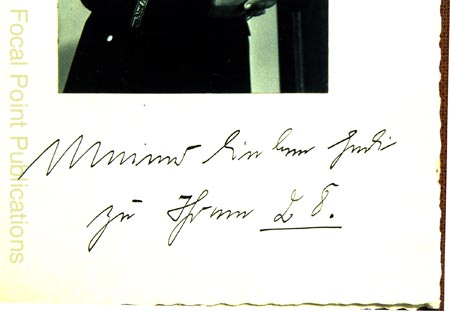 Meiner lieben Hedi
zu Ihrem 28.
Focal Point Publications